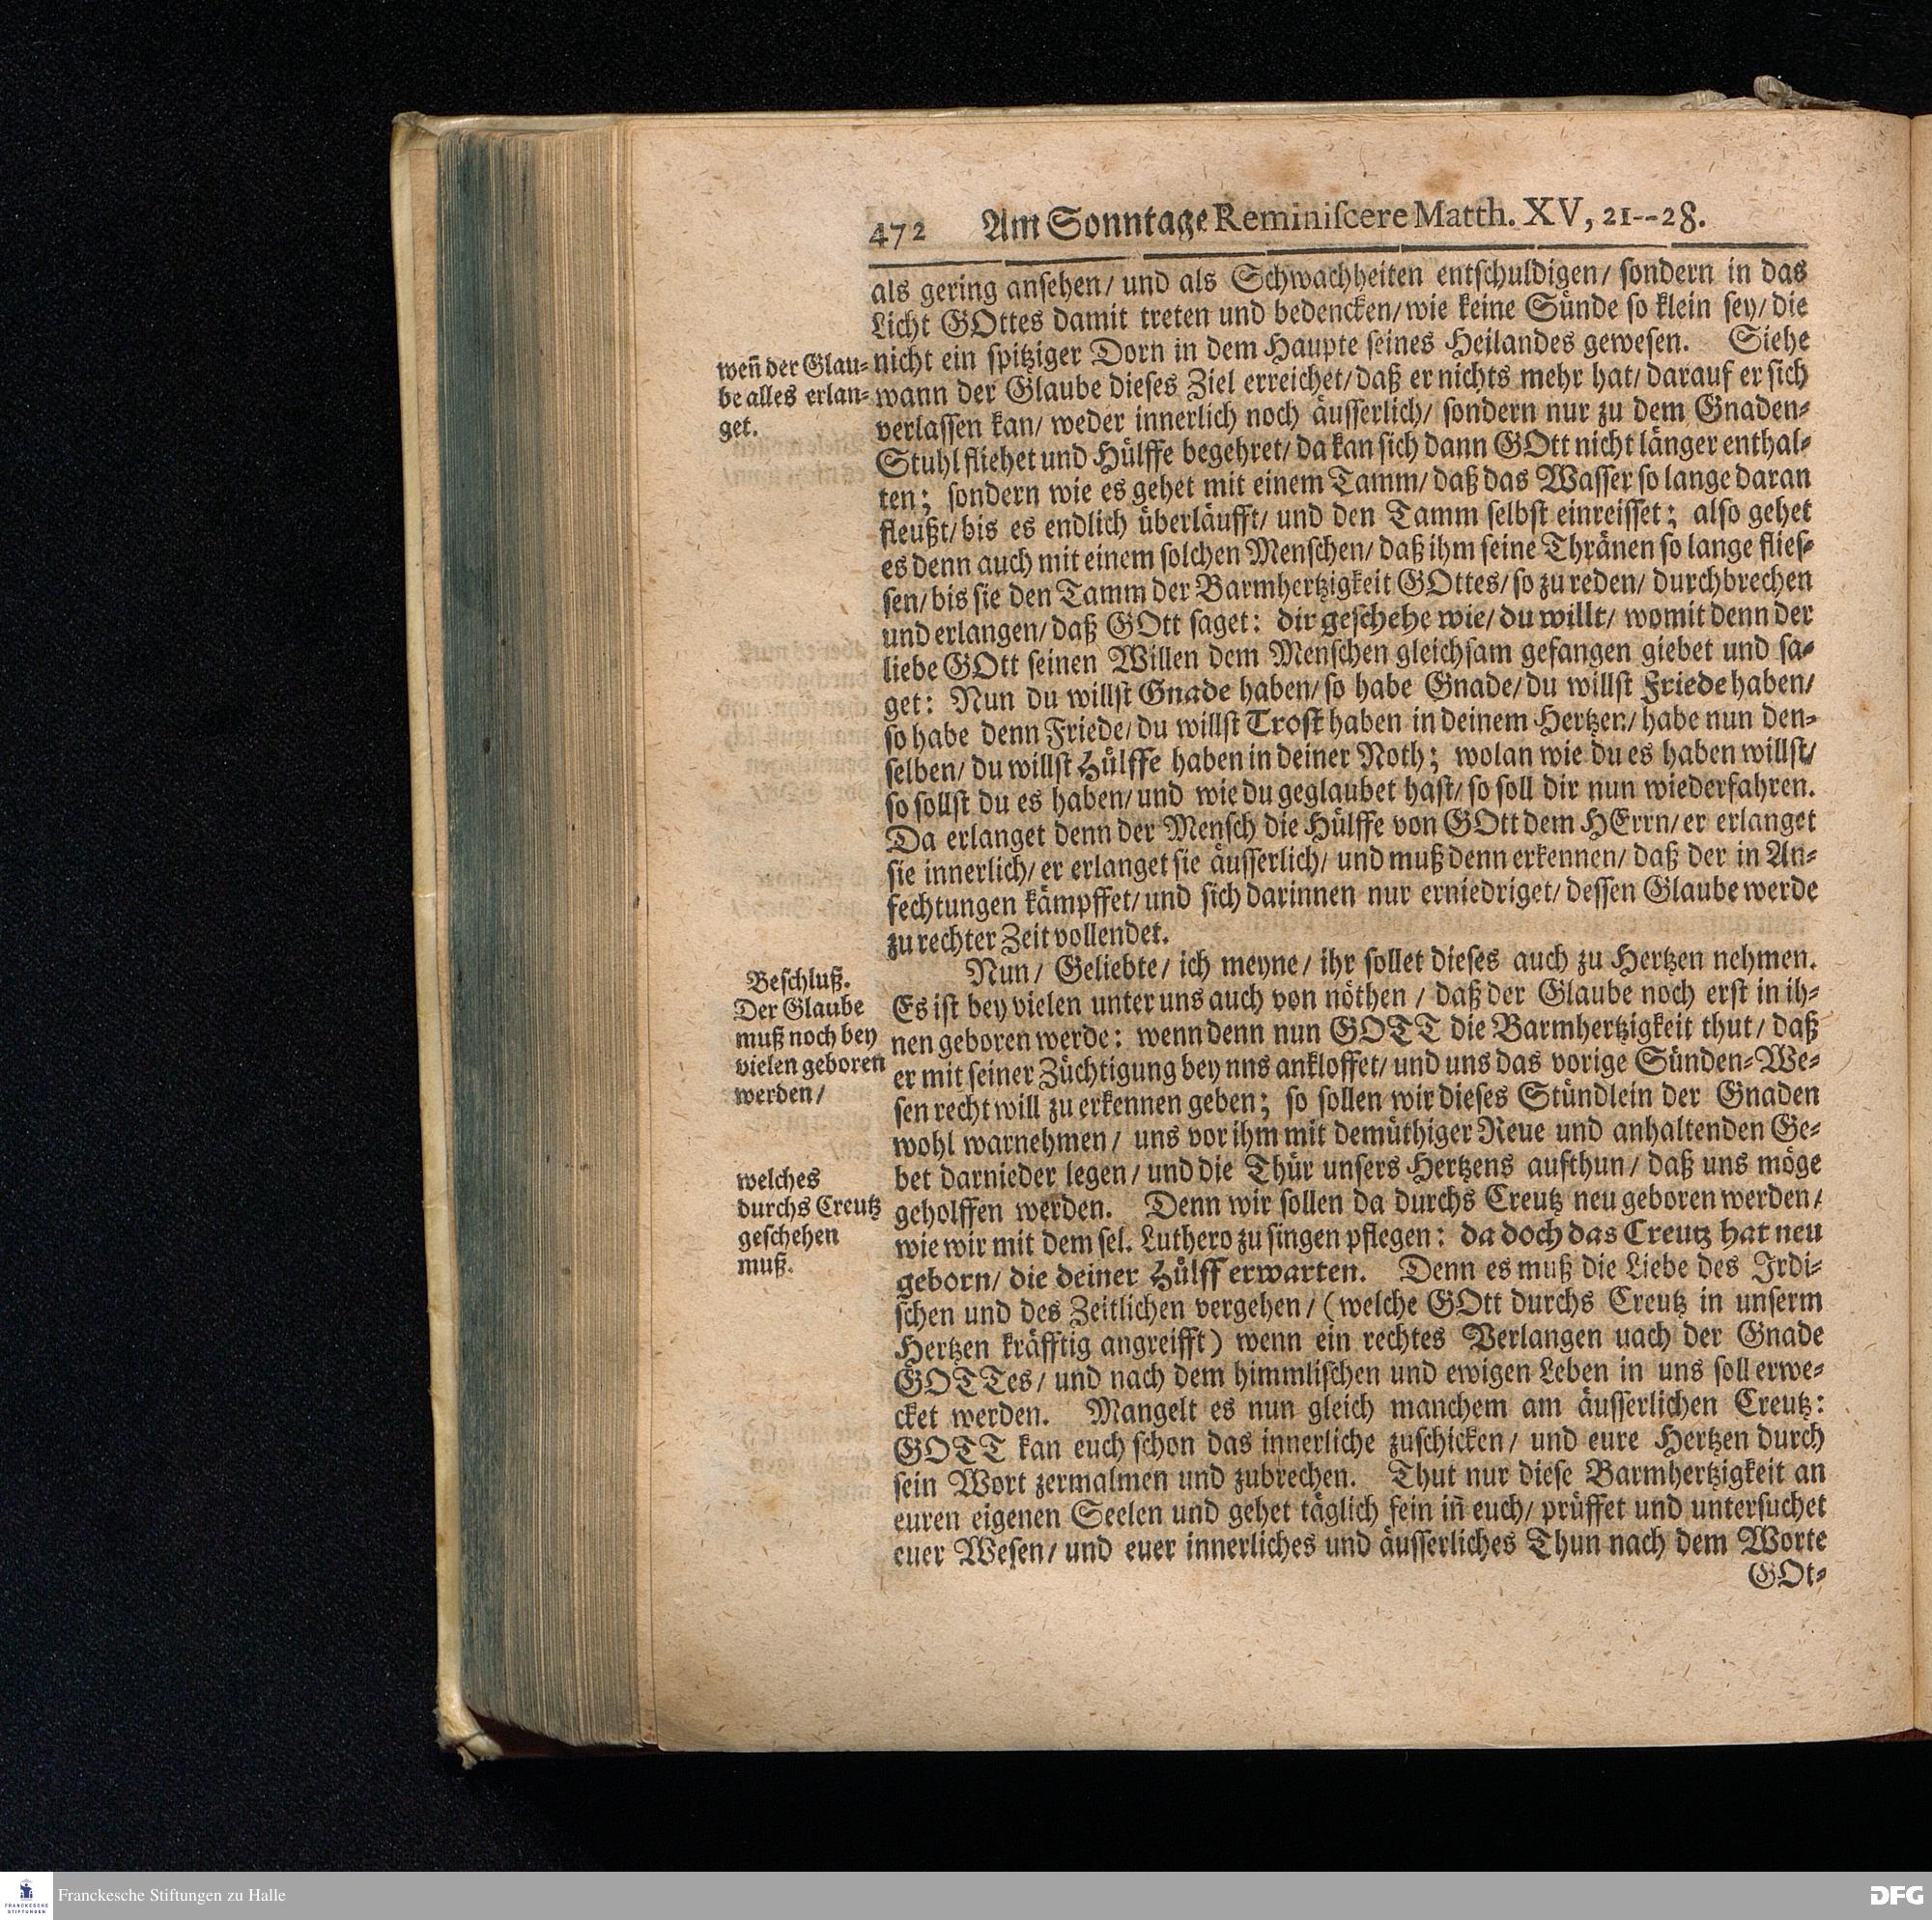 472 Am Sonntage Reminiſcere Matth. XV, 21--28.
als gering anſehen/ und als Schwachheiten entſchuldigen/ ſondern in das
Licht GOttes damit treten und bedencken/ wie keine Sünde ſo klein ſey/ die
nicht ein ſpitziger Dorn in dem Haupte ſeines Heilandes geweſen. Siehe
wann der Glaube dieſes Ziel erreichet/ daß er nichts mehr hat/ darauf er ſich
verlaſſen kan/ weder innerlich noch äuſſerlich/ ſondern nur zu dem Gnaden-
Stuhl fliehet und Hülffe begehret/ da kan ſich dann GOtt nicht länger enthal-
ten; ſondern wie es gehet mit einem Tamm/ daß das Waſſer ſo lange daran
fleußt/ bis es endlich überläufft/ und den Tamm ſelbſt einreiſſet; alſo gehet
es denn auch mit einem ſolchen Menſchen/ daß ihm ſeine Thränen ſo lange flieſ-
ſen/ bis ſie den Tamm der Barmhertzigkeit GOttes/ ſo zu reden/ durchbrechen
und erlangen/ daß GOtt ſaget: dir geſchehe wie/ du willt/ womit denn der
liebe GOtt ſeinen Willen dem Menſchen gleichſam gefangen giebet und ſa-
get: Nun du willſt Gnade haben/ ſo habe Gnade/ du willſt Friede haben/
ſo habe denn Friede/ du willſt Troſt haben in deinem Hertzen/ habe nun den-
ſelben/ du willſt Hülffe haben in deiner Noth; wolan wie du es haben willſt/
ſo ſollſt du es haben/ und wie du geglaubet haſt/ ſo ſoll dir nun wiederfahren.
Da erlanget denn der Menſch die Hülffe von GOtt dem HErrn/ er erlanget
ſie innerlich/ er erlanget ſie äuſſerlich/ und muß denn erkennen/ daß der in An-
fechtungen kämpffet/ und ſich darinnen nur erniedriget/ deſſen Glaube werde
zu rechter Zeit vollendet.
Nun/ Geliebte/ ich meyne/ ihr ſollet dieſes auch zu Hertzen nehmen.
Es iſt bey vielen unter uns auch von nöthen / daß der Glaube noch erſt in ih-
nen geboren werde: wenn denn nun GOTT die Barmhertzigkeit thut/ daß
er mit ſeiner Züchtigung bey nns ankloffet/ und uns das vorige Sünden-We-
ſen recht will zu erkennen geben; ſo ſollen wir dieſes Stündlein der Gnaden
wohl warnehmen/ uns vor ihm mit demüthiger Reue und anhaltenden Ge-
bet darnieder legen/ und die Thür unſers Hertzens aufthun/ daß uns möge
geholffen werden. Denn wir ſollen da durchs Creutz neu geboren werden/
wie wir mit dem ſel. Luthero zu ſingen pflegen: da doch das Creutz hat neu
geborn/ die deiner Hülff erwarten. Denn es muß die Liebe des Irdi-
ſchen und des Zeitlichen vergehen/ (welche GOtt durchs Creutz in unſerm
Hertzen kräfftig angreifft) wenn ein rechtes Verlangen uach der Gnade
GOTTes/ und nach dem himmliſchen und ewigen Leben in uns ſoll erwe-
cket werden. Mangelt es nun gleich manchem am äuſſerlichen Creutz:
GOTT kan euch ſchon das innerliche zuſchicken/ und eure Hertzen durch
ſein Wort zermalmen und zubrechen. Thut nur dieſe Barmhertzigkeit an
euren eigenen Seelen und gehet täglich fein in̄ euch/ prüffet und unterſuchet
euer Weſen/ und euer innerliches und äuſſerliches Thun nach dem Worte
GOt-
wen̄ der Glau-
be alles erlan-
get.
Beſchluß.
Der Glaube
muß noch bey
vielen geboren
werden/
welches
durchs Creutz
geſchehen
muß.
FRANCKESCHE
STIFTUNGEN
Franckesche Stiftungen zu Halle
DFG